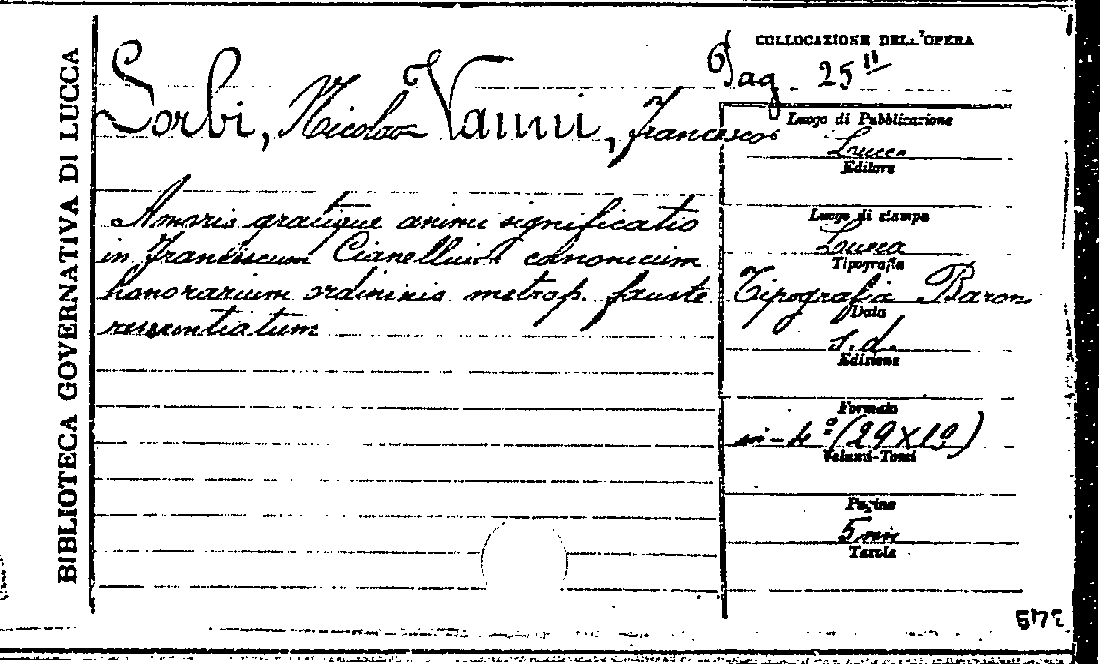 BIBLIOTECA GOVERNATIVA DI LUCCA
COLLOCAZIONE DELL'OPERA
Pag. 25 11
Sorbi, Nicolao Vanni, Francesco
Amoris gratique animi significatio
in Franciscum Cianellium canonicum
honorarium ordininis metrop. fauste
renuntiatum
Luogo di Pubblicazione
Lucca
Editore
Luogo di stampa
Lucca
Tipografia
Tipografia Baroni
Data
s.d.
Edizione
Formato
in-4º (29×19)
Volumi-Tomi
Pagine
5 nn
Tavole